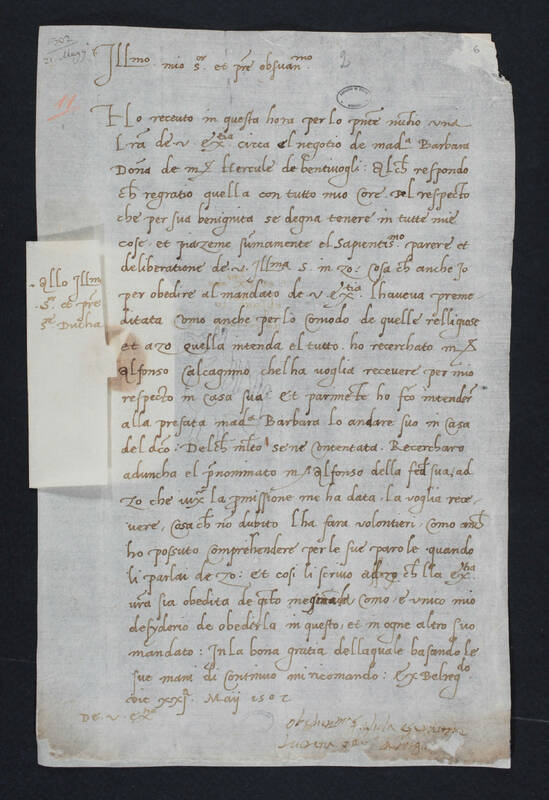 1502
21. Magg
6
2
11
Illmo. mio Sr. et pre obsuanmo.
Ho receuto in questa hora per lo pnte nuntio una
lra de v. extia. circa el negotio de mada. Barbara
Dona de mr Hercule de bentivogli: alch respondo
ch regratio quella con tutto mio core del respecto
che per sua benignita se degna tenere in tutte mie
cose. et piazeme summamente el sapientismo. parere et
deliberatione de v. Illma S. in zo: cosa ch anche Io
per obedire al mandato de v extia. lhaveva preme
ditata como anche per lo comodo de quelle relligiose
et a zo quella intenda el tutto. ho recerchato mr
Alfonso Calcagnino chel ha voglia recevere per mio
respecto in casa sua. et parimente ho fco intender
alla prefata mada. Barbara lo andare suo in casa
del dco: Delch mlto se ne contentata. Recercharo
aduncha el pnommato mr Alfonso della fed sua, ad
zo che la pmissione me ha data. la voglia rece,
vere, cosa ch no dubito lha fara volontieri, como anch
ho possuto comprehendere per le sue parole quando
li parlai de zo: et cosi li scrivo ch lla extia.
vra sia obedita de qto como, e unico mio
desyderio de obedirla in questo, et in ogne altro suo
mandato: In la bona gratia della quale basando le
sue mani di continuo mi ricomando: Ex Belregdo.
die xxj. Maij 1502
De. v. exa
Allo Illmo
Sr. et pre
Sre Ducha